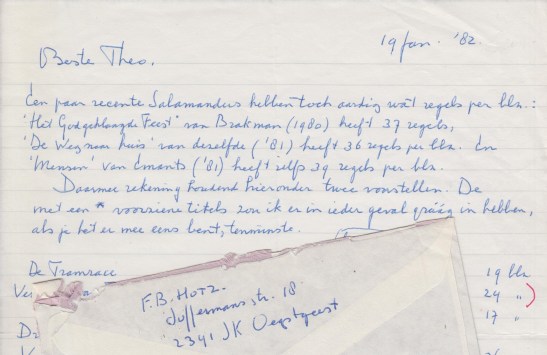 19 jan. '82.
Beste Theo,
Een paar recente Salamanders hebben toch aardig wat regels per blz.:
'Het Godgeklaagde Feest' van Brakman (1980) heeft 37 regels,
'De Weg naar huis' van dezelfde ('81) heeft 36 regels per blz. En
'Mensen' van Emants ('81) heeft zelfs 39 regels per blz.
Daarmee rekening houdend hieronder twee voorstellen. De
met een * voorziene titels zou ik er in ieder geval gráág in hebben,
als je het er mee eens bent, tenminste.
De Tramrace 19 blz
Ver 24 "
17 "
F.B. Hotz
Juffermansstr. 18
2341 JK Oegstgeest